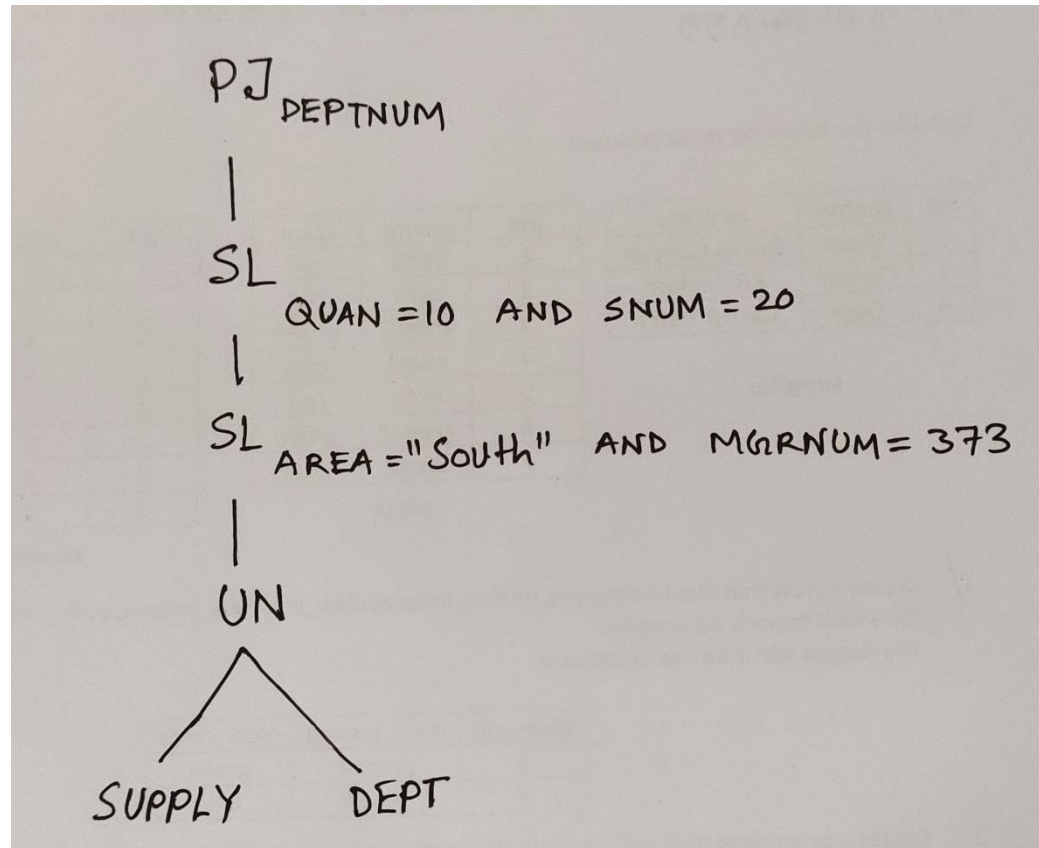 PJ DEPTNUM
SL
QUAN = 10 AND SNUM = 20
SL
AREA = "South" AND MGRNUM = 373
UN
SUPPLY DEPT